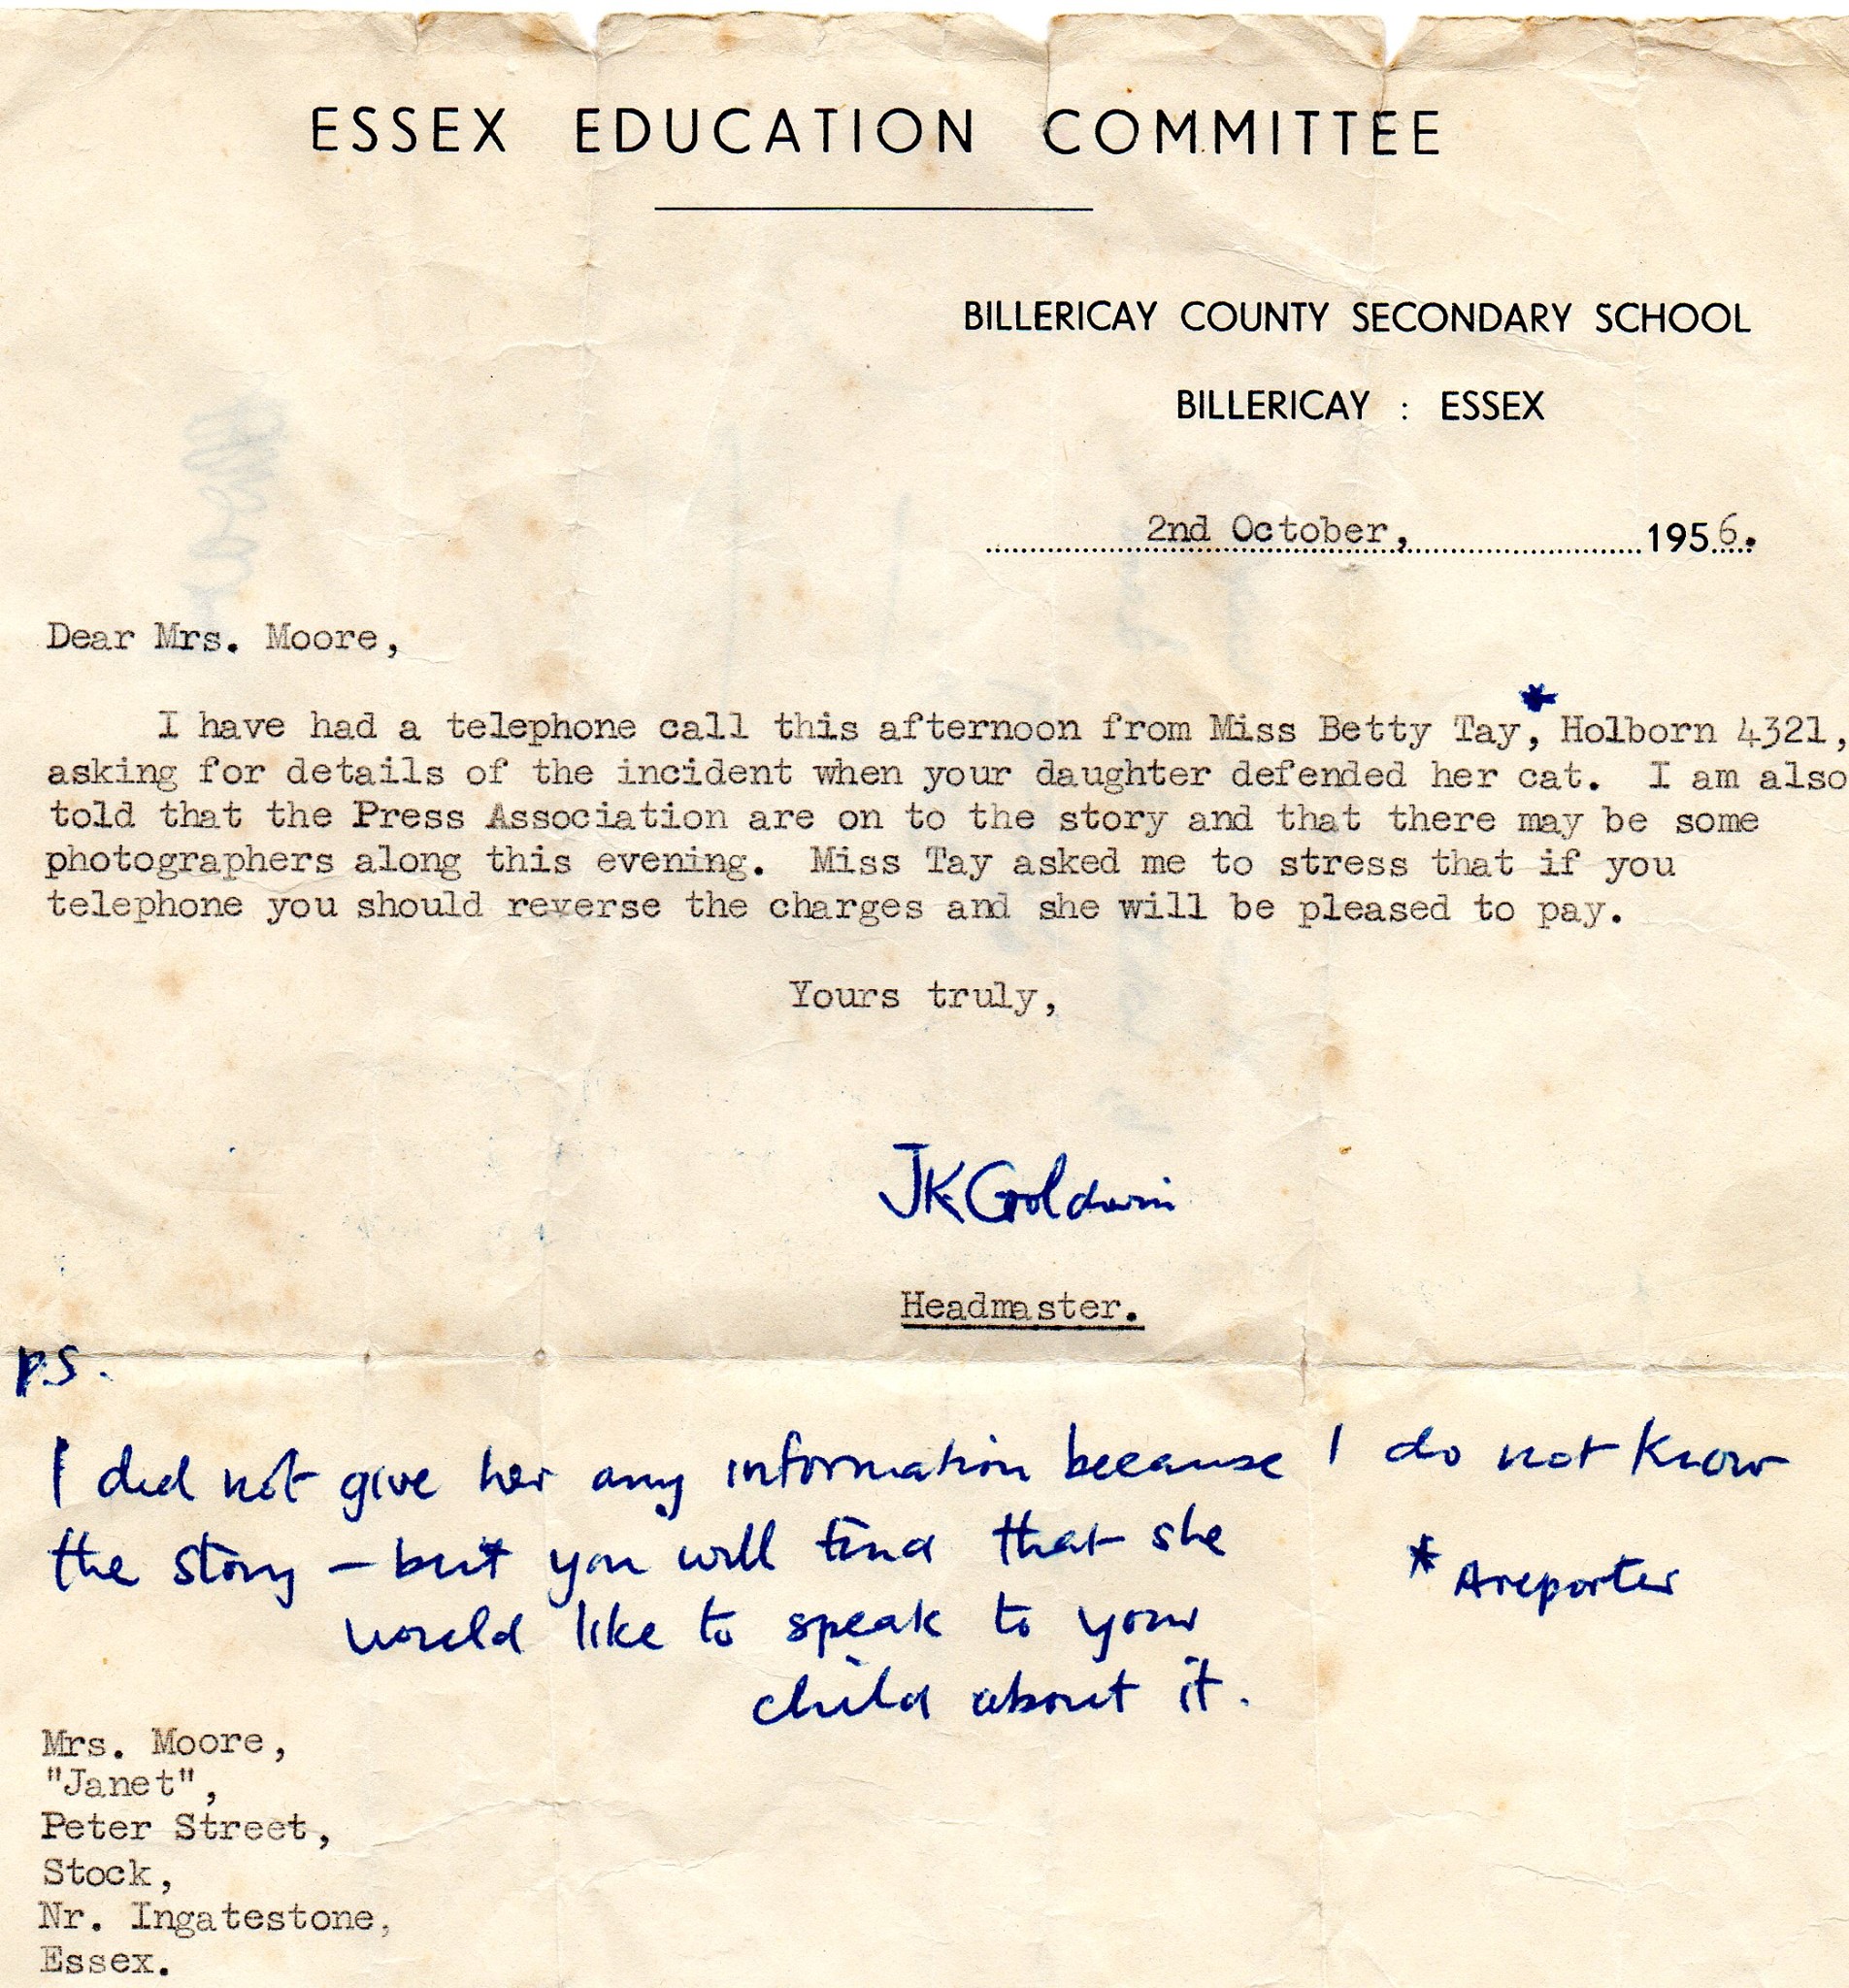 ESSEX EDUCATION COMMITTEE
BILLERICAY COUNTY SECONDARY SCHOOL
BILLERICAY : ESSEX
2nd October, 1956.
Dear Mrs. Moore,
I have had a telephone call this afternoon from Miss Betty Tay,* Holborn 4321,
asking for details of the incident when your daughter defended her cat. I am also
told that the Press Association are on to the story and that there may be some
photographers along this evening. Miss Tay asked me to stress that if you
telephone you should reverse the charges and she will be pleased to pay.
Yours truly,
JKGoldwin
Headmaster.
P.S.
I did not give her any information because I do not know
the story – but you will find that she
would like to speak to your
child about it.
* A reporter
Mrs. Moore,
"Janet",
Peter Street,
Stock,
Nr. Ingatestone,
Essex.